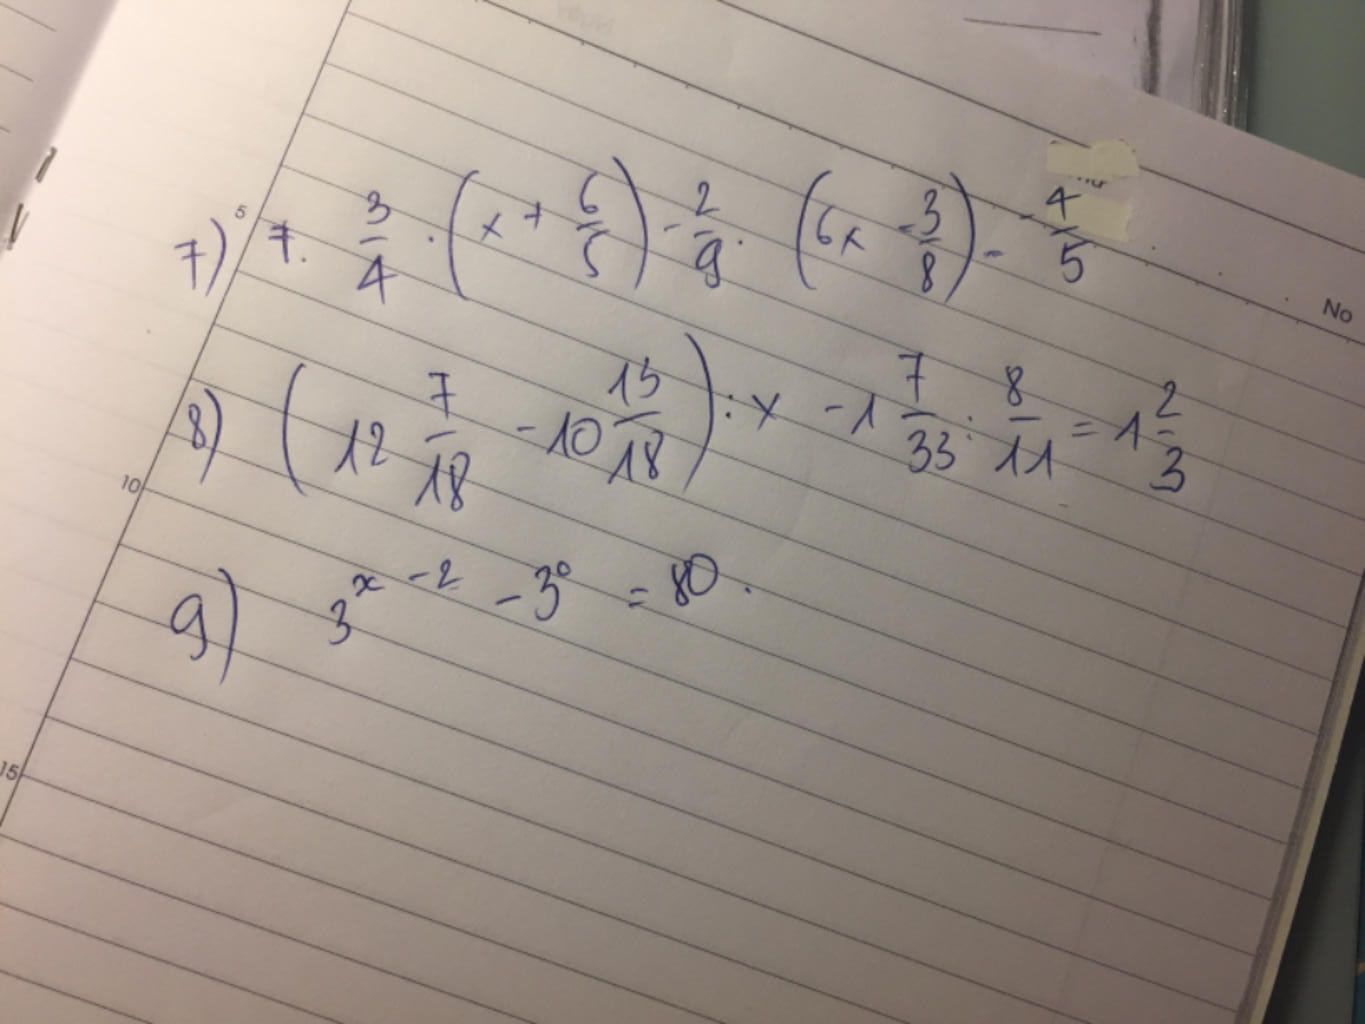 No
5
7) 7. 3/4 . (x + 6/5) - 2/9 . (6x - 3/8) = - 4/5
8) (12 7/18 - 10 15/18) : x - 1 7/33 : 8/11 = 1 2/3
10
9) 3^(x - 2) - 3^0 = 80.
15